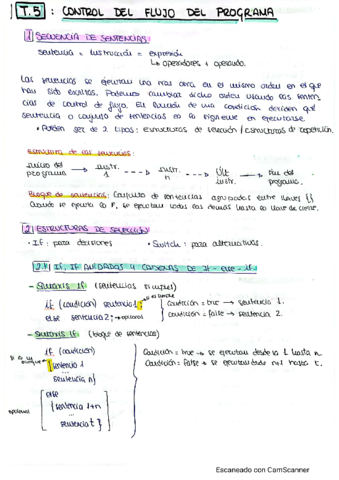 T.5: CONTROL DEL FLUJO DEL PROGRAMA
1 SECUENCIA DE SENTENCIAS:
Sentencia = instrucción = expresión
↳ operadores + operando.
Las sentencias se ejecutan una tras otra en el mismo orden en el que
han sido escritas. Podemos cambiar dicho orden usando las senten
cias de control de flujo. En función de una condición deciden qué
sentencia o conjunto de sentencias es la siguiente en ejecutarse.
• Pueden ser de 2 tipos: estructuras de selección / estructuras de repetición.
Estructura de las sentencias:
Inicio del programa → instr. 1 ---→ instr. n ---→ Últ. instr. → Fin del programa.
Bloque de sentencias: Conjunto de sentencias agrupadas entre llaves {}
Cuando se ejecuta la 1ª, se ejecutan todas las demás hasta la llave de cierre.
2 ESTRUCTURAS DE SELECCIÓN
• IF: para decisiones • Switch: para alternativas.
2.1 IF, IF ANIDADAS Y CASCADAS DE IF-else-if:
- Sintaxis IF: (sentencias simples)
if (condición) sentencia 1;
else sentencia 2; → opcional
Condición = true → sentencia 1.
Condición = false → sentencia 2.
- Sintaxis IF: (bloque de sentencias)
if (condición)
{sentencia 1
...
sentencia n}
Condición = true → se ejecutan desde la 1 hasta n.
Condición = false → se ejecutan desde n+1 hasta t.
opcional
else
{sentencia 1+n
...
sentencia t}
Escaneado con CamScanner